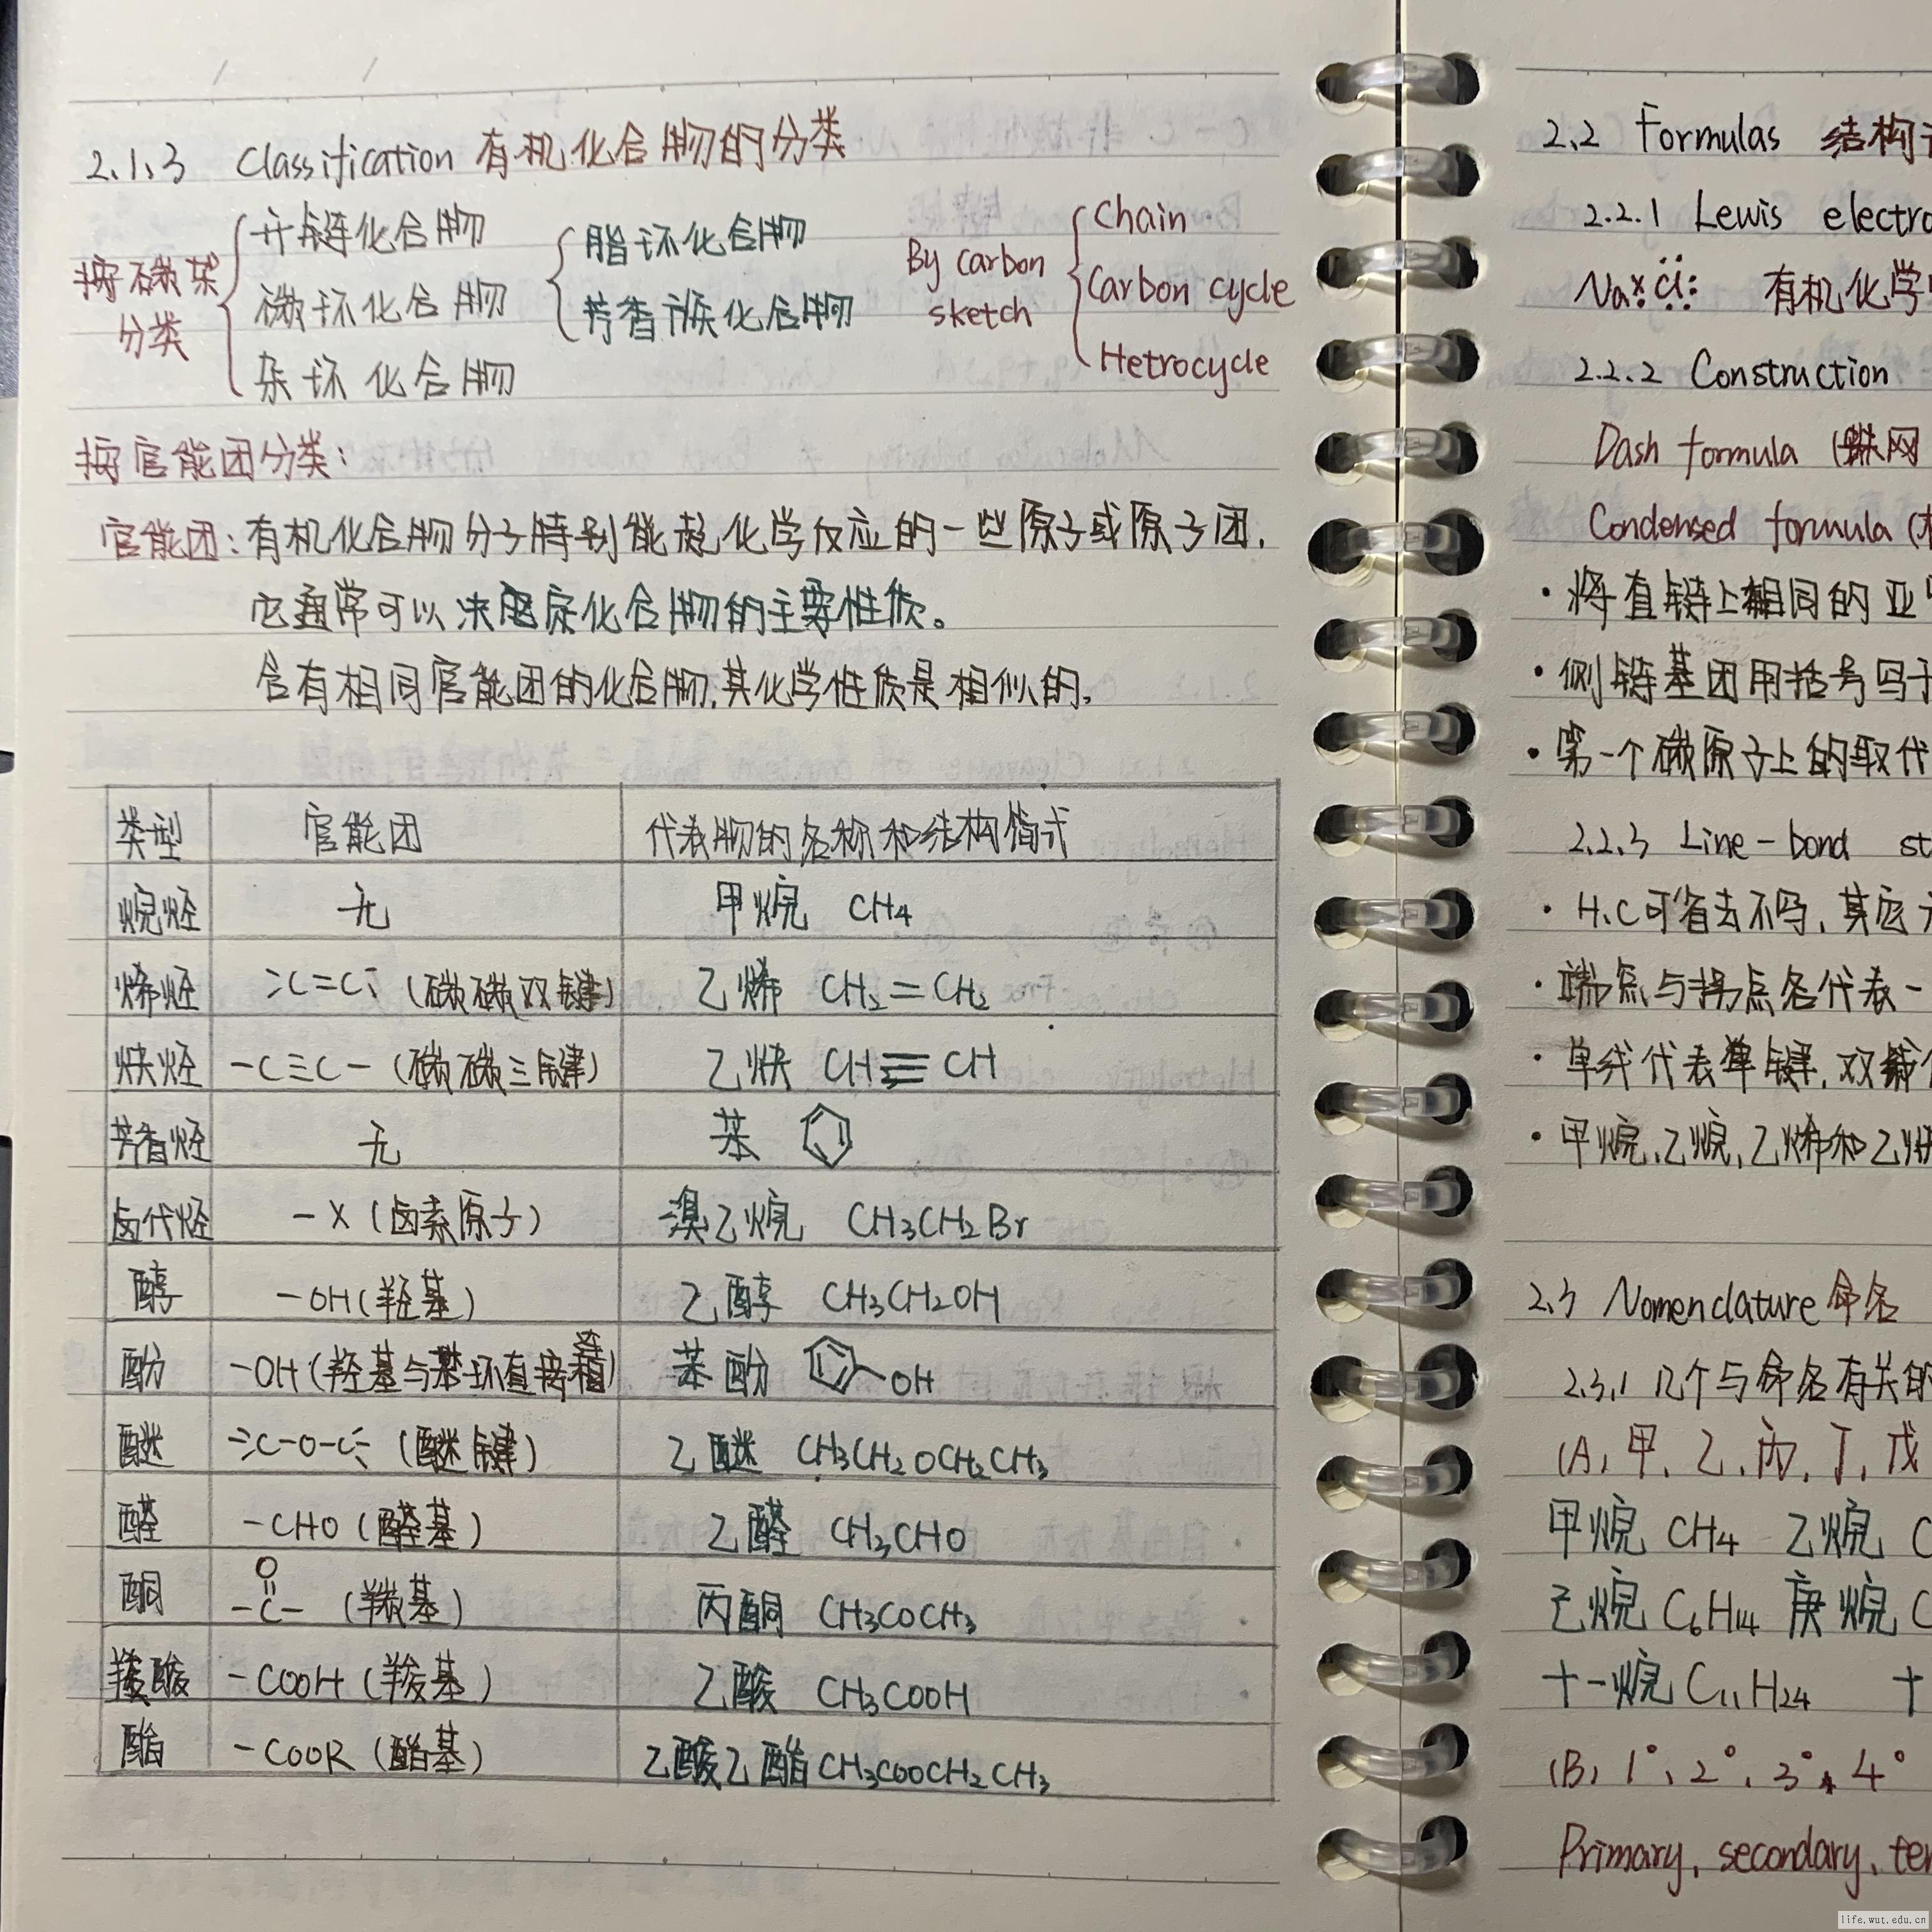 2.1.3 Classification 有机化合物的分类
按碳架分类
开链化合物
碳环化合物
杂环化合物
脂环化合物
芳香族化合物
By carbon sketch
Chain
Carbon cycle
Hetrocycle
按官能团分类:
官能团:有机化合物分子特别能起化学反应的一些原子或原子团,
它通常可以决定化合物的主要性质。
含有相同官能团的化合物,其化学性质是相似的,
类型 官能团 代表物的名称和结构简式
烷烃 无 甲烷 CH4
烯烃 >C=C< (碳碳双键) 乙烯 CH2=CH2
炔烃 -C≡C- (碳碳三键) 乙炔 CH≡CH
芳香烃 无 苯
卤代烃 -X (卤素原子) 溴乙烷 CH3CH2Br
醇 -OH (羟基) 乙醇 CH3CH2OH
酚 -OH (羟基与苯环直接连) 苯酚 OH
醚 C-O-C (醚键) 乙醚 CH3CH2OCH2CH3
醛 -CHO (醛基) 乙醛 CH3CHO
酮 O=C (羰基) 丙酮 CH3COCH3
羧酸 -COOH (羧基) 乙酸 CH3COOH
酯 -COOR (酯基) 乙酸乙酯 CH3COOCH2CH3
2.2 Formulas 结构
2.2.1 Lewis electro
Na Cl 有机化学
2.2.2 Construction
Dash formula (蛛网
Condensed formula (
·将直链上相同的亚
·侧链基团用括号写于
·第一个碳原子上的取代
2.2.3 Line-bond st
·H.C可省去不写,其它
·端点与拐点各代表一
·单线代表单键,双线
·甲烷,乙烷,乙烯和乙炔
2.3 Nomenclature 命名
2.3.1 几个与命名有关的
(A) 甲、乙、丙、丁、戊
甲烷 CH4 乙烷 C
己烷 C6H14 庚烷 C
十一烷 C11H24 十
(B) 1°、2°、3°、4°
Primary, secondary, ter
life.wut.edu.cn